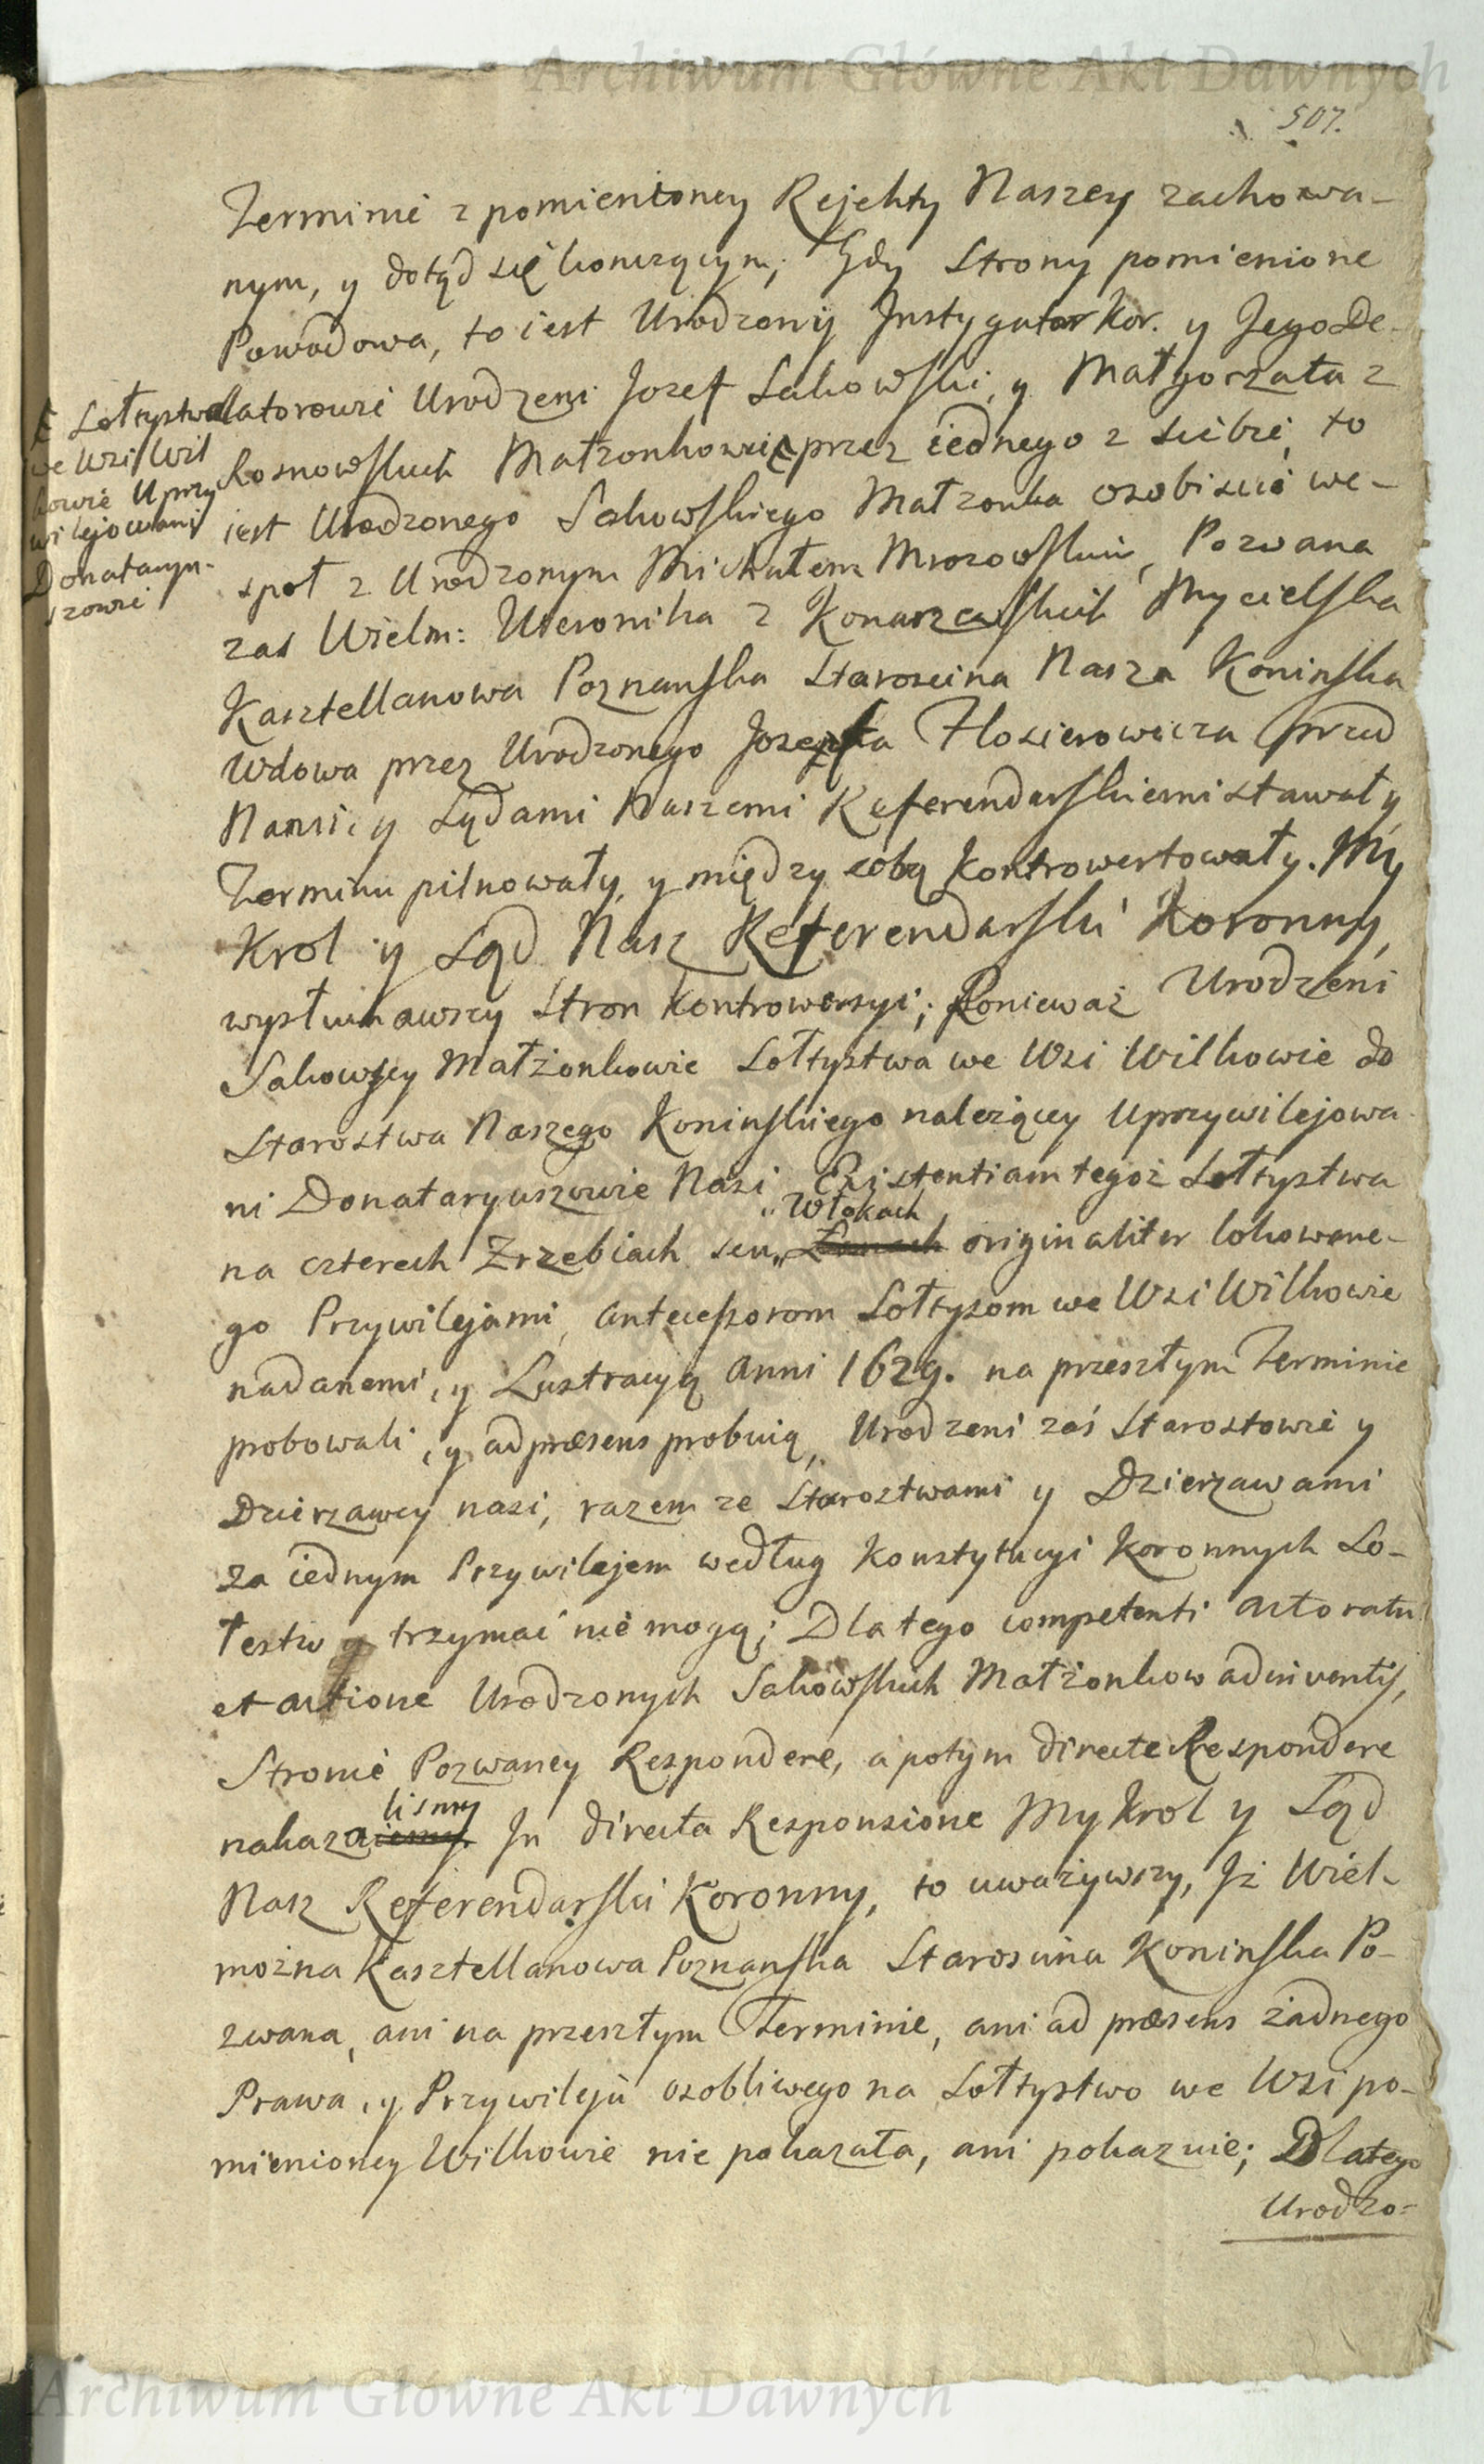 Archiwum Główne Akt Dawnych
507.
Terminie z pomienioney Rejekty Naszey zachowa-
nym, y dotąd się konczącym; Gdy Strony pomienione
Powodowa, to iest Urodzony Instygator Kor. y Jego De-
latorowie Urodzeni Jozef Sakowski, y Małgorzata z
Rosnowskich Małzonkowie przez iednego z siebie, to
iest Urodzonego Sakowskiego Małzonka osobiscie we-
społ z Urodzonym Michałem Mrozowskim, Pozwana
zas Wielm: Weronika z Konarzewskich Mycielska
Kasztellanowa Poznanska Staroscina Nasza Koninska
Wdowa przez Urodzonego Jozefa Złosierowicza przed
Nami, y Sądami Naszemi Referendarskiemi stawały,
Terminu pilnowały, y między sobą kontrowertowały. My
Krol y Sąd Nasz Referendarski Koronny,
wysłuchawszy Stron kontrowersyi; Ponieważ Urodzeni
Sakowscy Małżonkowie Sołtystwa we Wsi Wilkowie do
Starostwa Naszego Koninskiego należący Uprzywilejowa-
ni Donataryuszowie Nasi, Existentiam tegoż Sołtystwa
Włokach
na czterech Zrzebiach seu Łanach originaliter lokowane-
go Przywilejami, Antecessorom Sołtysom we Wsi Wilkowie
nadanemi, y Lustracyą Anni 1629. na przeszłym Terminie
probowali, y ad præsens probuią, Urodzeni zaś Starostowie y
Dzierzawcy nasi, razem ze Starostwami y Dzierzawami
za iednym Przywilejem według Konstytucyi Koronnych So-
łestw y trzymać nie mogą; Dlatego competenti Actoratu
et actione Urodzonych Sakowskich Małżonkow adinventis,
Stronie Pozwaney Respondere, a potym directe Respondere
lismy
nakazaiemy. In directa Responsione My Krol y Sąd
Nasz Referendarski Koronny, to uważywszy, Iż Wiel-
można Kasztellanowa Poznanska Staroscina Koninska Po-
zwana, ani na przeszłym Terminie, ani ad præsens żadnego
Prawa, y Przywileju osobliwego na Sołtystwo we Wsi po-
mienioney Wilkowie nie pokazała, ani pokazuie; Dlatego
Urodzo-
Sołtystwa
we Wsi Wil
kowie Uprzy
wilejowani
Donataryu-
szowie
Archiwum Główne Akt Dawnych